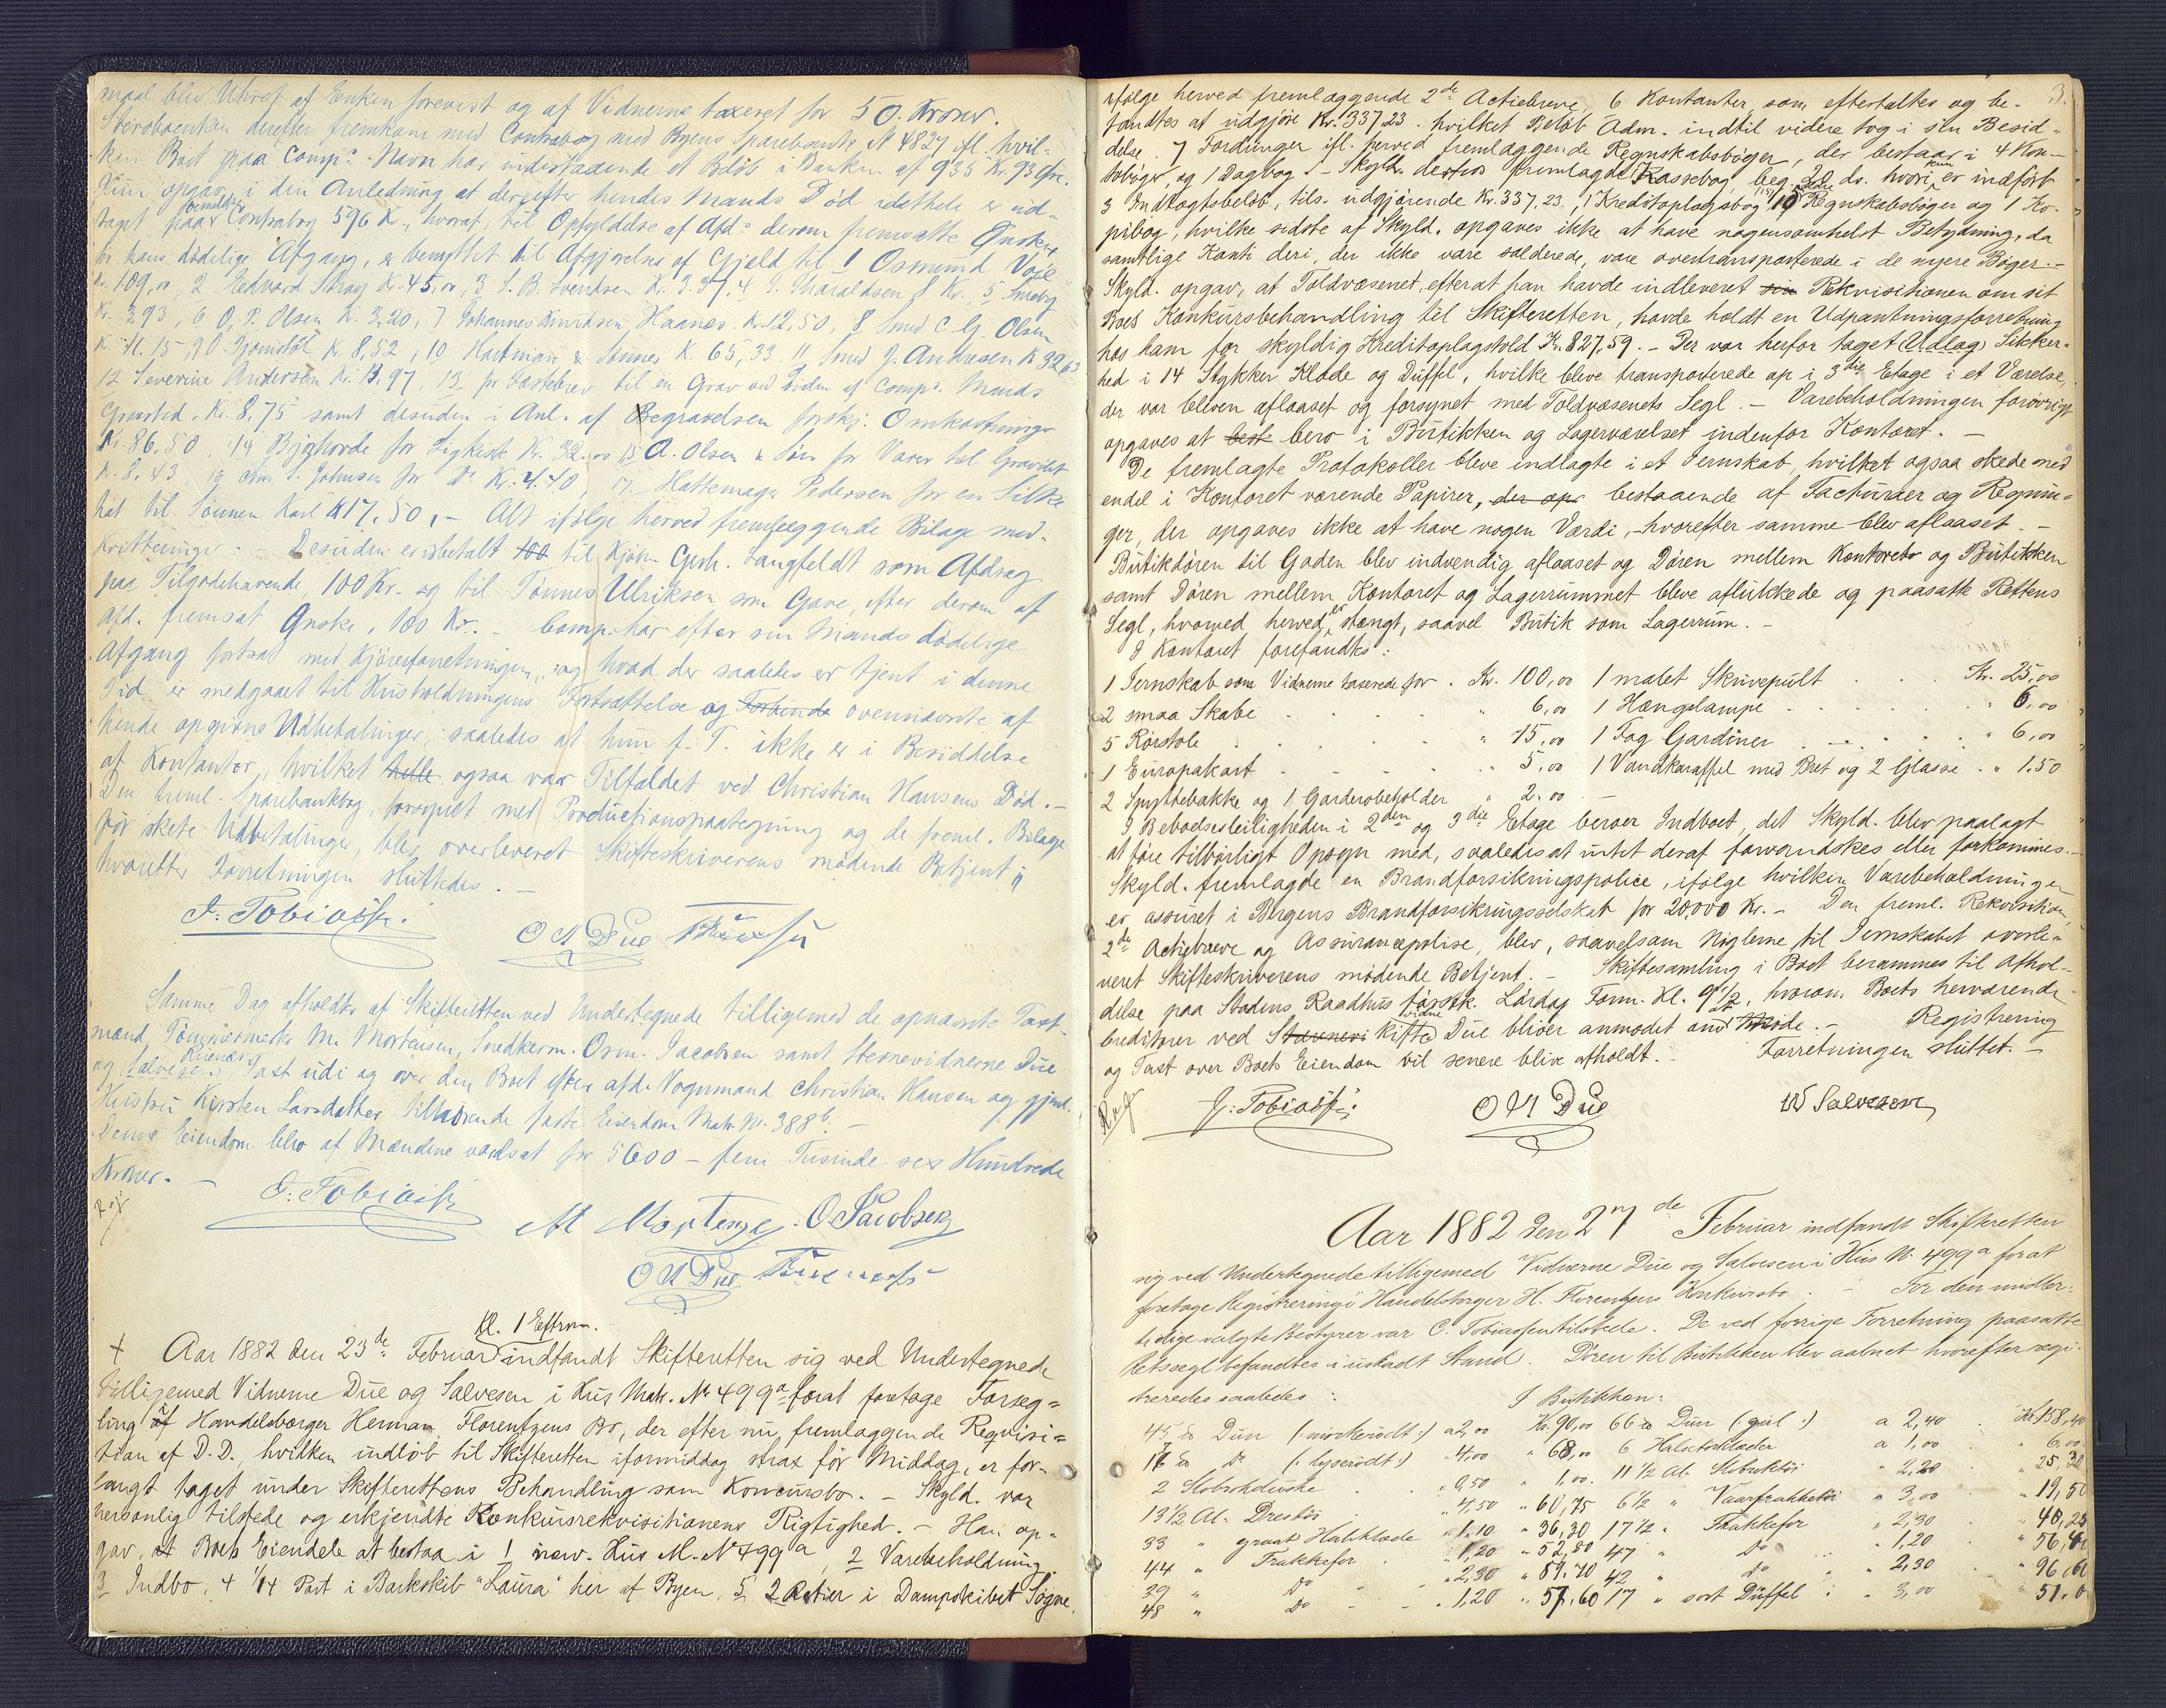 maal blev Uhret af Enken forevist og af Vidnerne taxeret for 50. Kroner.
Stervboenken derefter fremkom med Contrabog med Byens Sparebank, N 4827 ifl. hvil-
ken Boet paa Comp: Navn har indestaaende et Beløb i Banken af 935 Kr. 93 Øre.
Hun opgav i den Anledning at der efter hendes Mands Død idethele er ud-
taget paa bemeldte Contrabog 596 K., hvoraf, til Opfyldelse af Afd: derom fremsatte Ønsker
før hans dødelige Afgang, er benyttet til Afgjørelse af Gjæld til 1 Osmund Voie
Kr. 109,00, 2 Edvard Stray Kr. 45,00, 3 S. B. Svendsen Kr. 3.37, 4 T. Tharaldsen 8 Kr., 5 Smeby
Kr. 3,93, 6 O. P. Olsen K. 3,20, 7 Johannes Knudsen, Haanes. Kr. 12,50, 8 Smed C. G. Olsen
K. 11. 15, 9 O. Gjømstøl K. 8,52, 10 Hartman & Sønner K. 65,33 11 Smed J. Andresen K 32,63
12 Severine Andersen Kr. 13.97, 13 for Fæstebrev til en Grav ved Siden af Comps. Mands
Gravsted, Kr. 8.75 samt desuden i Anl. af Begravelsen forskj. Omkostninger
Kr. 86.50, 14 Bjørhovde for Ligkiste Kr. 32.00 15 A. Olsen & Søn for Varer til Gravølet
K. 8,43 16 Chr. S. Johnsen for Do Kr. 4.40, 17. Hattemager Pedersen for en Silke
hat til Sønnen Karl K 17,50,- Alt ifølge herved fremlæggende Bilage med-
Kvitteringer. - Desuden er udbetalt 100 til Kjøbm. Gerh. Langfeldt som Afdrag
paa Tilgodehavende, 100 Kr. og til Tønnes Ulriksen som Gave, efter derom af
Afd. fremsat Ønske, 100 Kr. - Comp. har efter sin Mands dødelige
Afgang fortsat med Kjøreforretningen, og hvad der saaledes er tjent i denne
Tid er medgaaet til Husholdningens Fortsættelse og ovennævnte af
hende opgivne Udbetalinger, saaledes at hun f. T. ikke er i Besiddelse
af Kontanter, hvilket ogsaa var Tilfældet ved Christian Hansens Død. -
Den freml. Sparebankbog, forsynet med Productionspaategning og de freml. Bilage
før skete Udbetalinger, blev overleveret Skifteskriverens mødende Betjent
hvorefter Forretningen sluttedes. -
J. Tobiassen.
O N Due
Samme Dag afholdtes af Skifteretten ved Undertegnede tilligemed de opnævnte Taxt-
mænd, Tømmermester M. Mortensen, Snedkerm. Osm. Jacobsen samt Stevnevidnerne Due
og Taxt udi og over den Boet efter afd. Vognmand Christian Hansen og gjenl.
Hustru Kirsten Larsdatter tilhørende faste Eiendom Matr. N. 388b. -
Denne Eiendom blev af Mændene værdsat for 5600 - fem Tusinde sex Hundrede
Kroner. -
J. Tobiassen
M Mortensen. O. Jacobsen
O N Due
Kl. 1 Efterm.
+ Aar 1882 den 23de Februar indfandt Skifteretten sig ved Undertegnede
tilligemed Vidnerne Due og Salvesen i Hus Matr. No 499a forat foretage Forseg=
ling af Handelsborger Herman Florentzens Bo, der efter nu fremlæggende Reqvisi=
tion af D. D., hvilken indløb til Skifteretten iformiddag strax før Middag, er for-
langt taget under Skifterettens Behandling som Konkursbo. - Skyld. var
personlig tilstede og erkjendte Konkursrekvisitionens Rigtighed. - Han op-
gav, at Boets Eiendele at bestaa i 1 nær. Hus M. No 499a, 2 Varebeholdning
3 Indbo, 4 1/14 Part i Barkskib "Laura" her af Byen, 5 2 Aktier i Dampskibet Søgne,
3.
ifølge herved fremlæggende 2de Actiebreve, 6 Kontanter, som eftertaltes og be-
fandtes at udgjøre Kr. 337.23. hvilket Beløb Adm. indtil videre tog i sin Besid=
delse. 7 Fordringer ifl. herved fremlæggende Regnskabsbøger, der bestaar i 4 Kon-
tobøger, og 1 Dagbog. - Skyldn. desuden fremlagde Kassebog, beg. 20 ds. hvori kun er indført
3 Indtægtsbeløb, tils. udgjørende Kr. 337.23. 1 Kreditoplagsbog, 10 ældre Regnskabsbøger og 1 Ko-
pibog, hvilke sidste af Skyld. opgaves ikke at have nogensomhelst Betydning, da
samtlige Konti deri, der ikke vare salderede, vare overtransporterede i de nyere Bøger. -
Skyld. opgav, at Toldvæsenet, efterat han havde indleveret Rekvisitionen om sit
Boes Konkursbehandling til Skifteretten, havde holdt en Udpantningsforretning
hos ham for skyldig Kreditoplagstold Kr. 827,59. - Der var herfor taget (Udlæg) Sikker-
hed i 14 Stykker Klæde og Düffel, hvilke bleve transporterede op i 3die Etage i et Værelse,
der var bleven aflaaset og forsynet med Toldvæsenets Segl. - Varebeholdningen forøvrigt
opgaves at bero i Butikken og Lagerværelset indenfor Kontoret. -
De fremlagte Protokoller bleve indlagte i et Jernskab, hvilket ogsaa skede med
endel i Kontoret værende Papirer, bestaaende af Facturaer og Regnin=
ger, der opgaves ikke at have nogen Værdi, hvorefter samme blev aflaaset. -
Butikdøren til Gaden blev indvendig aflaaset og Døren mellem Kontoret og Butikken
samt Døren mellem Kontoret og Lagerrummet bleve aflukkede og paasatte Rettens
Segl, hvorved herved er stængt, saavel Butik som Lagerrum. -
I Kontoret forefandtes:
1 Jernskab som Vidnerne taxerede for . Kr. 100,00 1 malet Skrivepult . . . Kr. 25,00
2 smaa Skabe . . . " 6,00 1 Hængelampe . . . " 6,00
5 Rørstole . . . " 15,00 1 Fag Gardiner . . . " 6,00
1 Europakart . . . " 5,00 1 Vandkaraffel med Bret og 2 Glasse . " 1.50
2 Spyttebakke og 1 Garderobeholder " 2.00
I Beboelsesleiligheden i 2den og 3die Etage beroer Indboet, det Skyld. blev paalagt
at føre tilbørligt Opsyn med, saaledes at intet deraf forvandskes eller forkommes. -
Skyld. fremlagde en Brandforsikringspolice, ifølge hvilken Varebeholdningen
er assuret i Bergens Brandforsikringsselskab for 20,000 Kr. - Den freml. Rekvisition,
2de Actiebreve og Assurancepolise, blev, saavelsom Nøglerne til Jernskabet overle-
veret Skifteskriverens mødende Betjent. - Skiftesamling i Boet berammes til Afhol-
delse paa Stadens Raadhus førstk. Lørdag Form. Kl. 9 1/2, hvorom Boets herværende
Creditorer ved Skiftevidne Due bliver anmodet om at møde. - Registrering
og Taxt over Boets Eiendom vil senere blive afholdt. - Forretningen sluttet. -
J. Tobiassen.
O N Due
W Salvesen
Aar 1882 den 27de Februar indfandt Skifteretten
sig ved Undertegnede tilligemed Vidnerne Due og Salvesen i Hus No 499a forat
foretage Registrering i Handelsborger H. Florentzens Konkursbo. - For den midler-
tidige valgte Bestyrer var C. Tobiassen tilstede. De ved forrige Forretning paasatte
Retssegl befandtes i uskadt Stand. Døren til Butikken blev aabnet hvorefter regi-
streredes saaledes:
I Butikken:
45 Al Dun (:mørkerødt:) a 2,00 Kr. 90,00 66 Al Dun (:gul:) a 2,40 . Kr 158,40
17 Al do (:lyserødt:) " 4,00 " 68,00 6 Halstørklæder a 1,00 " 6,00
2 " 0,50 " 1,00. 11 1/2 Al. " 2,20 " 25,30
13 1/2 Al. Drestøi " 4,50 " 60,75 6 1/2 " Vaarfrakketøi " 3,00 " 19,50
33 " graat Halvklæde " 1,10 " 36,30 17 1/2 " Frakkefor " 2,30 " 40,25
44 " Frakkefor " 1,20 " 52,80 47 " do " 1,20 " 56,40
39 " do " 2,30 " 89.70 42 " do " 2,30 " 96,60
48 " do " 1,20 " 57,60 17 " sort Düffel " 3,00 51.0